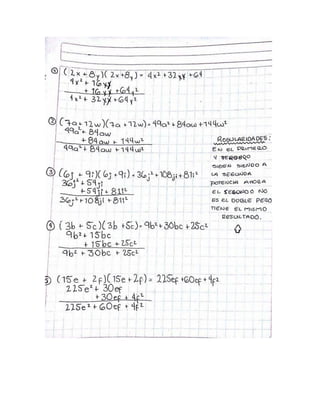 ① (2x + 8y)(2x + 8y) = 4x² + 32xy + 64
4x² + 16xy
+ 16xy + 64y²
4x² + 32xy + 64y²
② (7a + 12w)(7a + 12w) = 49a² + 84aw + 144w²
49a² + 84aw
+ 84aw + 144w²
49a² + 84aw + 144w²
③ (6j + 9i)(6j + 9i) = 36j² + 108ji + 81i²
36j² + 54ji
+ 54ji + 81i²
36j² + 108ji + 81i²
④ (3b + 5c)(3b + 5c) = 9b² + 30bc + 25c²
9b² + 15bc
+ 15bc + 25c²
9b² + 30bc + 25c²
⑤ (15e + 2f)(15e + 2f) = 225ef + 60ef + 4f²
225e² + 30ef
+ 30ef + 4f²
225e² + 60ef + 4f²
REGULARIDADES:
EN EL PRIMERO
Y TERCERO
SIGEN SIENDO A
LA SEGUNDA
POTENCIA AHORA
EL SEGUNDO NO
ES EL DOBLE PERO
TIENE EL MISMO
RESULTADO.